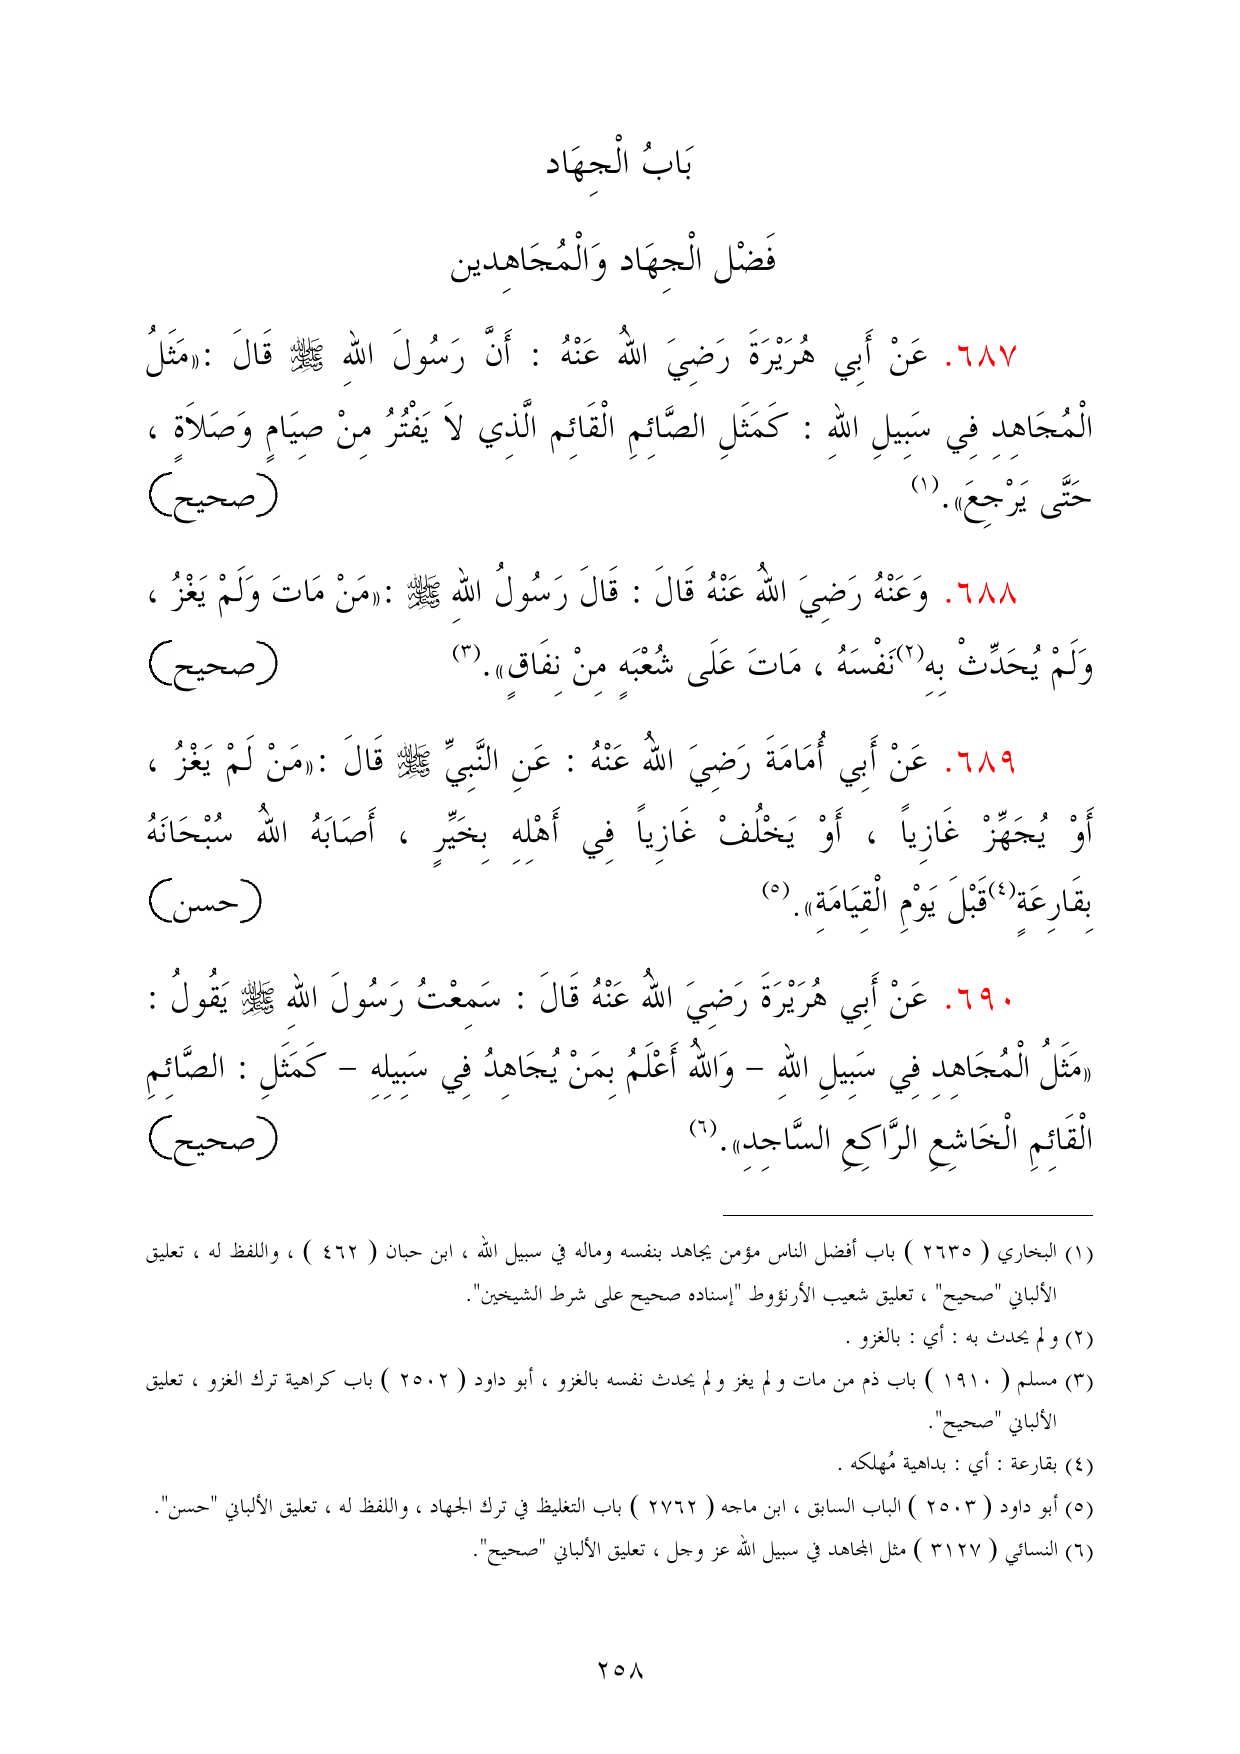 بَابُ الْجِهَاد
فَضْل الْجِهَاد وَالْمُجَاهِدين
٦٨٧. عَنْ أَبِي هُرَيْرَةَ رَضِيَ اللهُ عَنْهُ : أَنَّ رَسُولَ اللهِ ﷺ قَالَ :«مَثَلُ
الْمُجَاهِدِ فِي سَبِيلِ اللهِ : كَمَثَلِ الصَّائِمِ الْقَائِمِ الَّذِي لاَ يَفْتُرُ مِنْ صِيَامٍ وَصَلاَةٍ ،
حَتَّى يَرْجِعَ».(١) (صحيح)
٦٨٨. وَعَنْهُ رَضِيَ اللهُ عَنْهُ قَالَ : قَالَ رَسُولُ اللهِ ﷺ :«مَنْ مَاتَ وَلَمْ يَغْزُ ،
وَلَمْ يُحَدِّثْ بِهِ(٢)نَفْسَهُ ، مَاتَ عَلَى شُعْبَهٍ مِنْ نِفَاقٍ».(٣) (صحيح)
٦٨٩. عَنْ أَبِي أُمَامَةَ رَضِيَ اللهُ عَنْهُ : عَنِ النَّبِيِّ ﷺ قَالَ :«مَنْ لَمْ يَغْزُ ،
أَوْ يُجَهِّزْ غَازِياً ، أَوْ يَخْلُفْ غَازِياً فِي أَهْلِهِ بِخَيِّرٍ ، أَصَابَهُ اللهُ سُبْحَانَهُ
بِقَارِعَةٍ(٤)قَبْلَ يَوْمِ الْقِيَامَةِ».(٥) (حسن)
٦٩٠. عَنْ أَبِي هُرَيْرَةَ رَضِيَ اللهُ عَنْهُ قَالَ : سَمِعْتُ رَسُولَ اللهِ ﷺ يَقُولُ :
«مَثَلُ الْمُجَاهِدِ فِي سَبِيلِ اللهِ – وَاللهُ أَعْلَمُ بِمَنْ يُجَاهِدُ فِي سَبِيلِهِ – كَمَثَلِ : الصَّائِمِ
الْقَائِمِ الْخَاشِعِ الرَّاكِعِ السَّاجِدِ».(٦) (صحيح)
(١) البخاري ( ٢٦٣٥ ) باب أفضل الناس مؤمن يجاهد بنفسه وماله في سبيل الله ، ابن حبان ( ٤٦٢ ) ، واللفظ له ، تعليق
الألباني "صحيح" ، تعليق شعيب الأرنؤوط "إسناده صحيح على شرط الشيخين".
(٢) ولم يحدث به : أي : بالغزو .
(٣) مسلم ( ١٩١٠ ) باب ذم من مات ولم يغز ولم يحدث نفسه بالغزو ، أبو داود ( ٢٥٠٢ ) باب كراهية ترك الغزو ، تعليق
الألباني "صحيح".
(٤) بقارعة : أي : بداهية مُهلكه .
(٥) أبو داود ( ٢٥٠٣ ) الباب السابق ، ابن ماجه ( ٢٧٦٢ ) باب التغليظ في ترك الجهاد ، واللفظ له ، تعليق الألباني "حسن".
(٦) النسائي ( ٣١٢٧ ) مثل المجاهد في سبيل الله عز وجل ، تعليق الألباني "صحيح".
٢٥٨